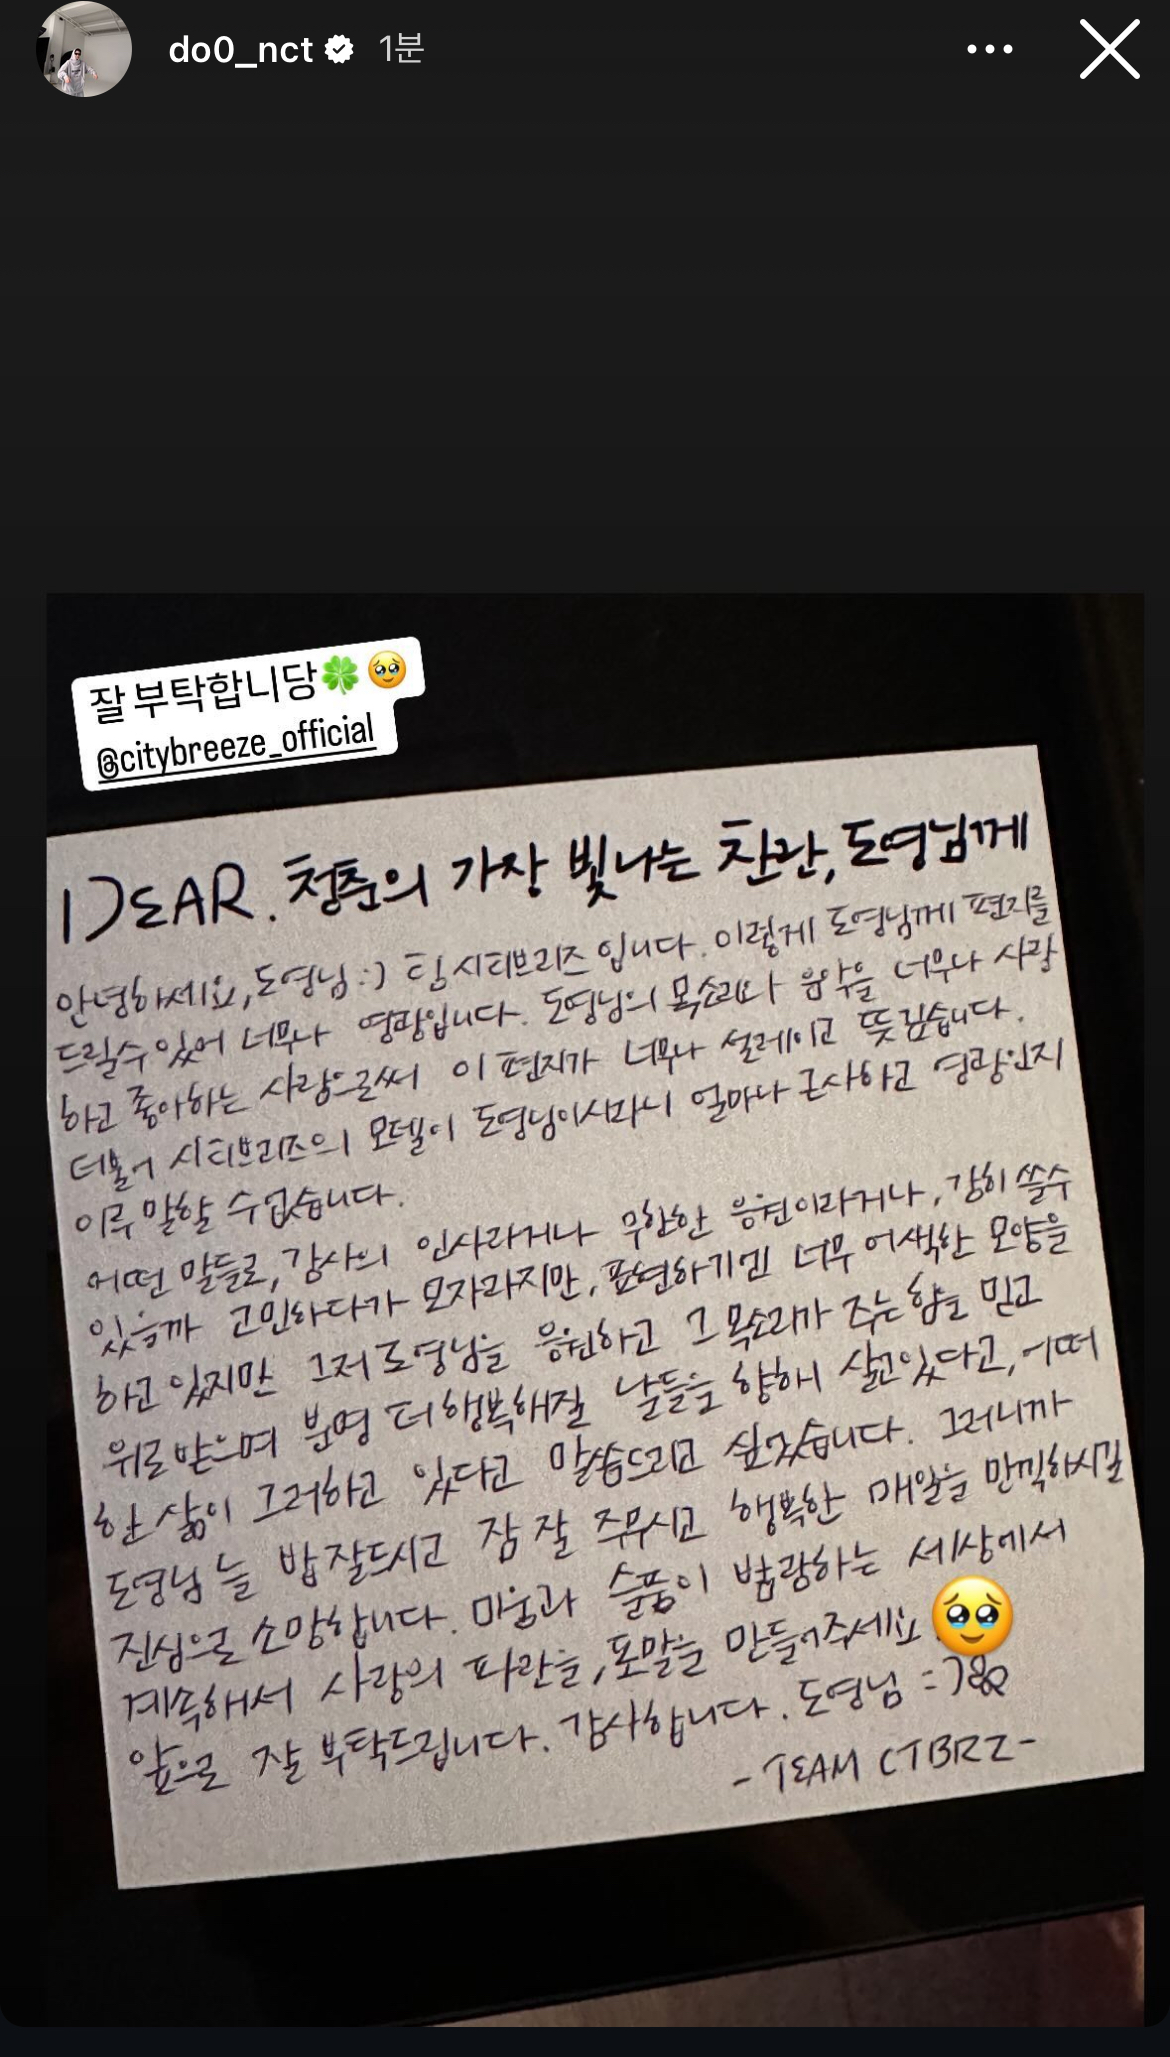 do0_nct 1분
잘 부탁합니당🍀🥹
@citybreeze_official
DEAR. 청춘의 가장 빛나는 찬란, 도영님께
안녕하세요, 도영님 :) 팀 시티브리즈 입니다. 이렇게 도영님께 편지를
드릴수 있어 너무나 영광입니다. 도영님의 목소리와 음악을 너무나 사랑
하고 좋아하는 사람으로써 이 편지가 너무나 설레이고 뜻깊습니다.
더불어 시티브리즈의 모델이 도영님이시라니 얼마나 근사하고 영광인지
이루 말할 수 없습니다.
어떤 말들로, 감사의 인사라거나 무한한 응원이라거나, 감히 쓸수
있을까 고민하다가 모자라지만, 표현하기엔 너무 어색한 모양을
하고 있지만 그저 도영님을 응원하고 그 목소리가 주는 힘을 믿고
위로받으며 분명 더 행복해질 날들을 향해 살고있다고, 어떠
한 삶이 그러하고 있다고 말씀드리고 싶었습니다. 그러니까
도영님 늘 밥 잘드시고 잠 잘 주무시고 행복한 매일을 만끽하시길
진심으로 소망합니다. 미움과 슬픔이 범람하는 세상에서
계속해서 사랑의 파란을, 포말을 만들어주세요 🥹
앞으로 잘 부탁드립니다. 감사합니다. 도영님
- TEAM CTBRZ -